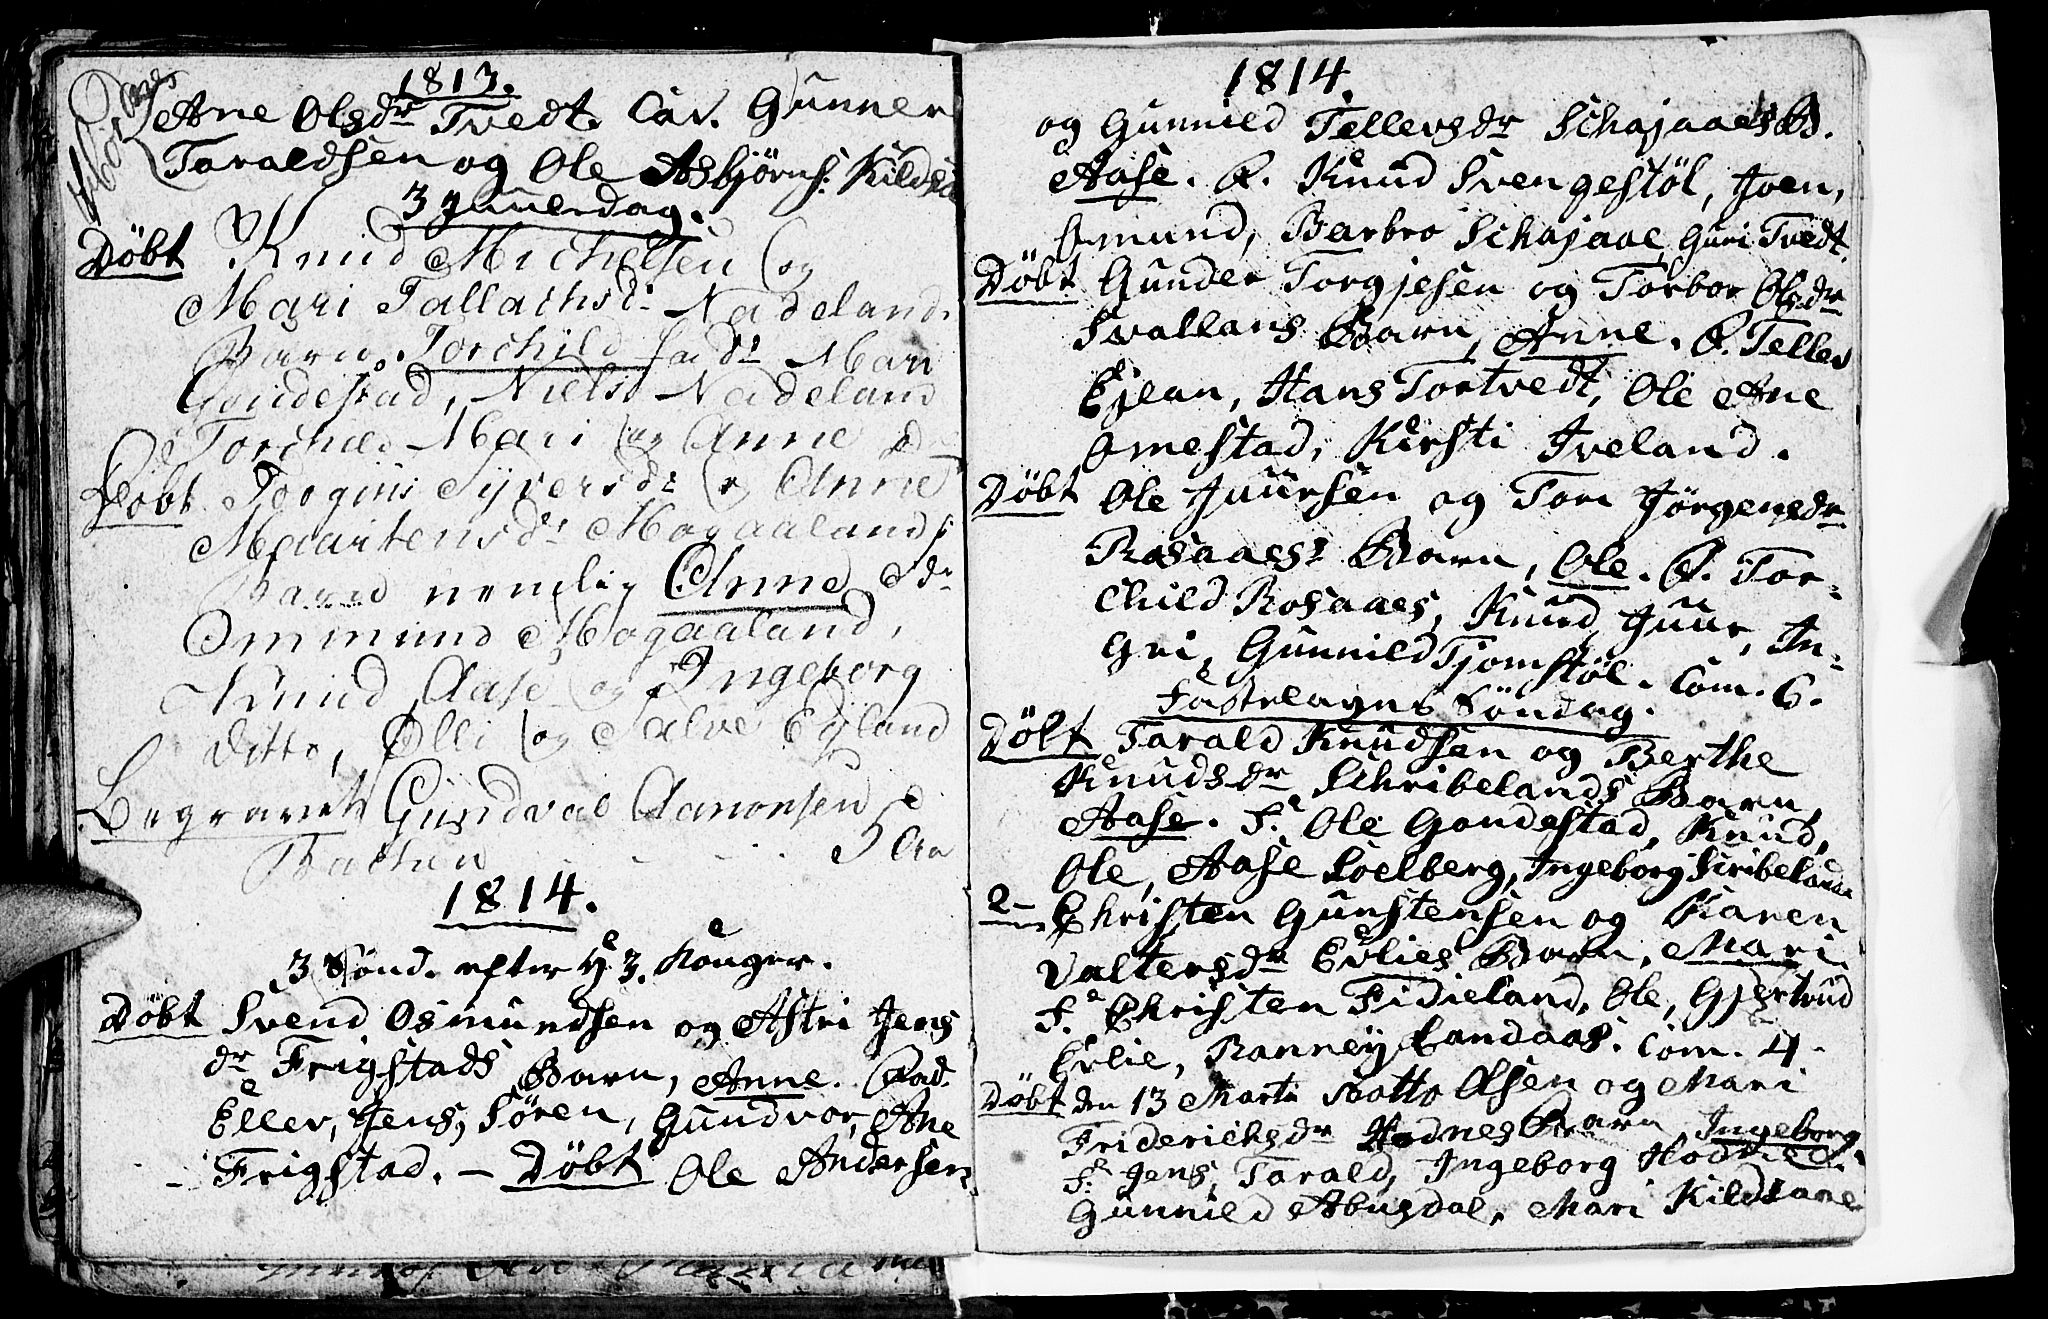 1813.
Ane Olsdr Tvedt. Cav. Gunner
Taraldsen og Ole Asbjørns: Kildsa
3 Juuledag.
Døbt Knud Michelsen og
Mari Tallachsdr Nadeland.
Barn. Torchild fadr Mari
Goudestad, Niels Nadeland
Torchild Mari og Anne d
Døbt Jorgius Syversdr og Anne
Maartensdr Mogaaland
Barn nemlig Anne Fdr
Ommund Mogaaland,
Knud, Aase og Ingeborg
ditto, Olli og Salve Egland
Begravet Gundvae Aanonsen
5 Aar
1814.
3 Sønd. efter H. 3. Konger.
Døbt Svend Osmundsen og Astri Jens
dr Frigstads Barn, Anne. Fad.
Eller, Jens, Søren, Gundvor, Ane
Frigstad. – Døbt Ole Andersen
1814.
og Gunnild Tellevsdr Schajaaes B.
Aase. F. Knud Svengestøl, Joen,
Omund, Barbro Schajaae, Guri Tvedt.
Døbt Gunder Torgjesen og Torbor Olsdr
Svallans Barn, Anne. F. Tellev
Ejean, Hans Tortvedt, Ole Ane
Omestad, Kirsti Iveland.
Døbt Ole Juursen og Tore Jørgensdr
Rosaaes Barn, Ole. F. Tor-
child Rosaaes, Knud, Juur, In-
gri, Gunnild Tjomstøl. Com. 6.
Fastelavns Søndag.
Døbt Tarald Knudsen og Berthe
Knudsdr Schribelands Barn,
Aase. F. Ole Goudestad, Knud,
Ole, Aase Loelberg, Ingeborg Scribeland
2 – Christen Gunstensen og Karen
Valtersdr Erlies Barn, Mari.
F. Christen Fidieland, Ole, Gjertrud
Erlie, Ranney Landaas. Com. 4.
Døbt den 13 Marti Aatto Olsen og Mari
Friderichsdr Hodnes Barn Ingeborg.
F. Jens, Tarald, Ingeborg Hodne
Gunnild Abusdal, Mari Kildsane